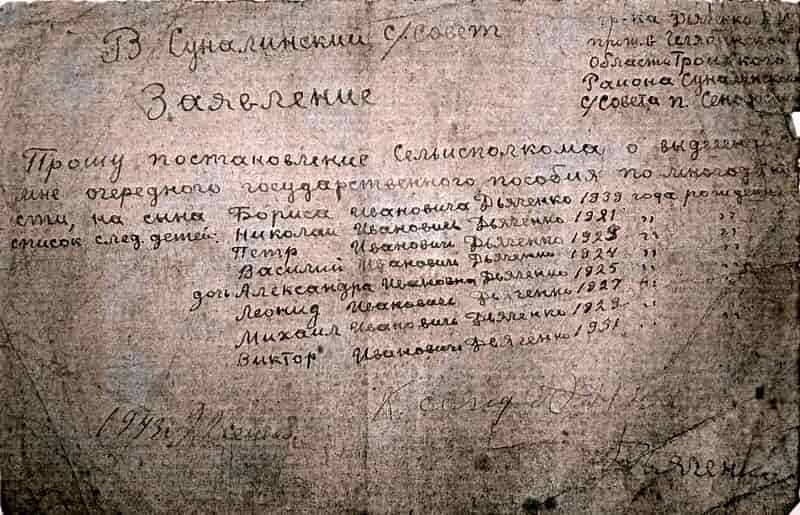 В Суналинский с/совет
гр-ка Дьяченко
прож. в Челябинской
области Троицкого
Района Суналинского
с/Совета п.
Заявление
Прошу постановление Сельисполкома о выделении
мне очередного государственного пособия по многодетно
сти, на сына Бориса Ивановича Дьяченко 1939 года рождения
список след. детей: Николай Ивановичь Дьяченко 1921 " " "
Петр Иванович Дьяченко 1923 " " "
Василий Иванович Дьяченко 1924 " " "
дочь Александра Ивановна Дьяченко 1925 " " "
Леонид Ивановичь Дьяченко 1927 " " "
Михаил Ивановичь Дьяченко 1929 " "
Виктор Ивановичь Дьяченко 1931 " "
К
1943г.
Дьяченко